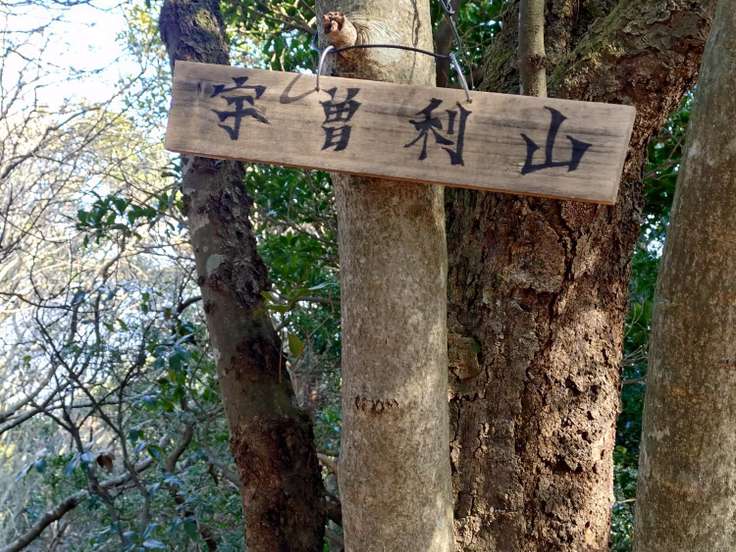 宇曽利山